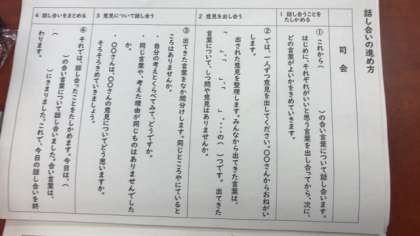 話し合いの進め方
司会
1 話し合うことをたしかめる
① これから（　　　）の合い言葉について話し合います。
はじめに、それぞれがいいと思う言葉を出し合ってから、次に、
どの言葉がよいかをきめていきます。
2 意見を出し合う
② では、一人ずつ意見を出してください。〇〇さんからおねがい
します。
出された意見を整理します。みんなから出てきた言葉は、
「　」、「　」、「　」、…の（　）つです。出てきた
言葉について、しつ問や意見はありませんか。
3 意見について話し合う
③ 出てきた言葉をなか間分けします。同じところやにていると
ころはありませんか。
・自分の考えとくらべてみて、どうですか。
・同じ言葉や、考えた理由が同じものはありませんでした
か。
・〇〇さんは、〇〇さんの意見についてどう思いますか。
そろそろきめていきましょう。
4 話し合いをまとめる
④ それでは、話し合ったことをたしかめます。今日は、（
　）の合い言葉について話し合いました。合い言葉は、
（　　　）にきまりました。これで、今日の話し合いを終
わります。